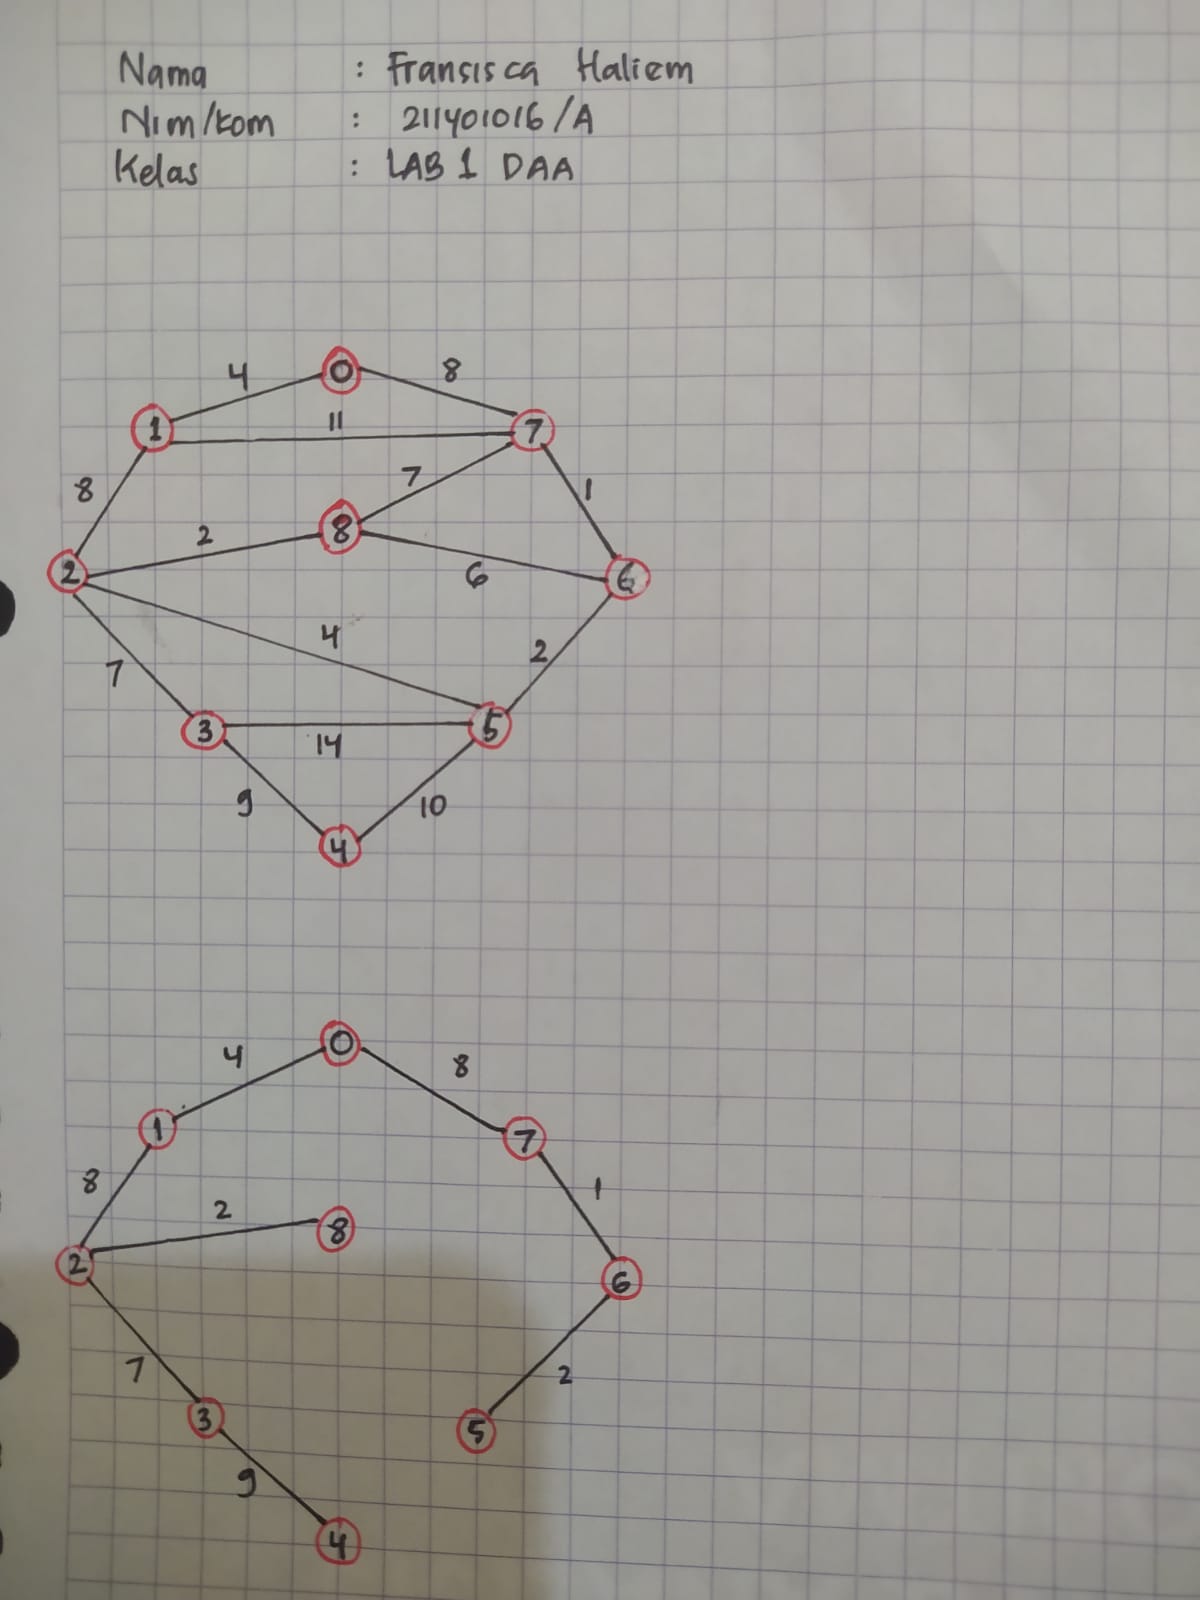 Nama : Fransisca Haliem
Nim/kom : 211401016/A
Kelas : LAB 1 DAA
4 0 8
1 11 7
8 7 1
2 8
2 6 6
4
7 2
3 14 5
9 10
4
0
4 8
1 7
8 2 1
8
2 6
7 2
3 5
9
4